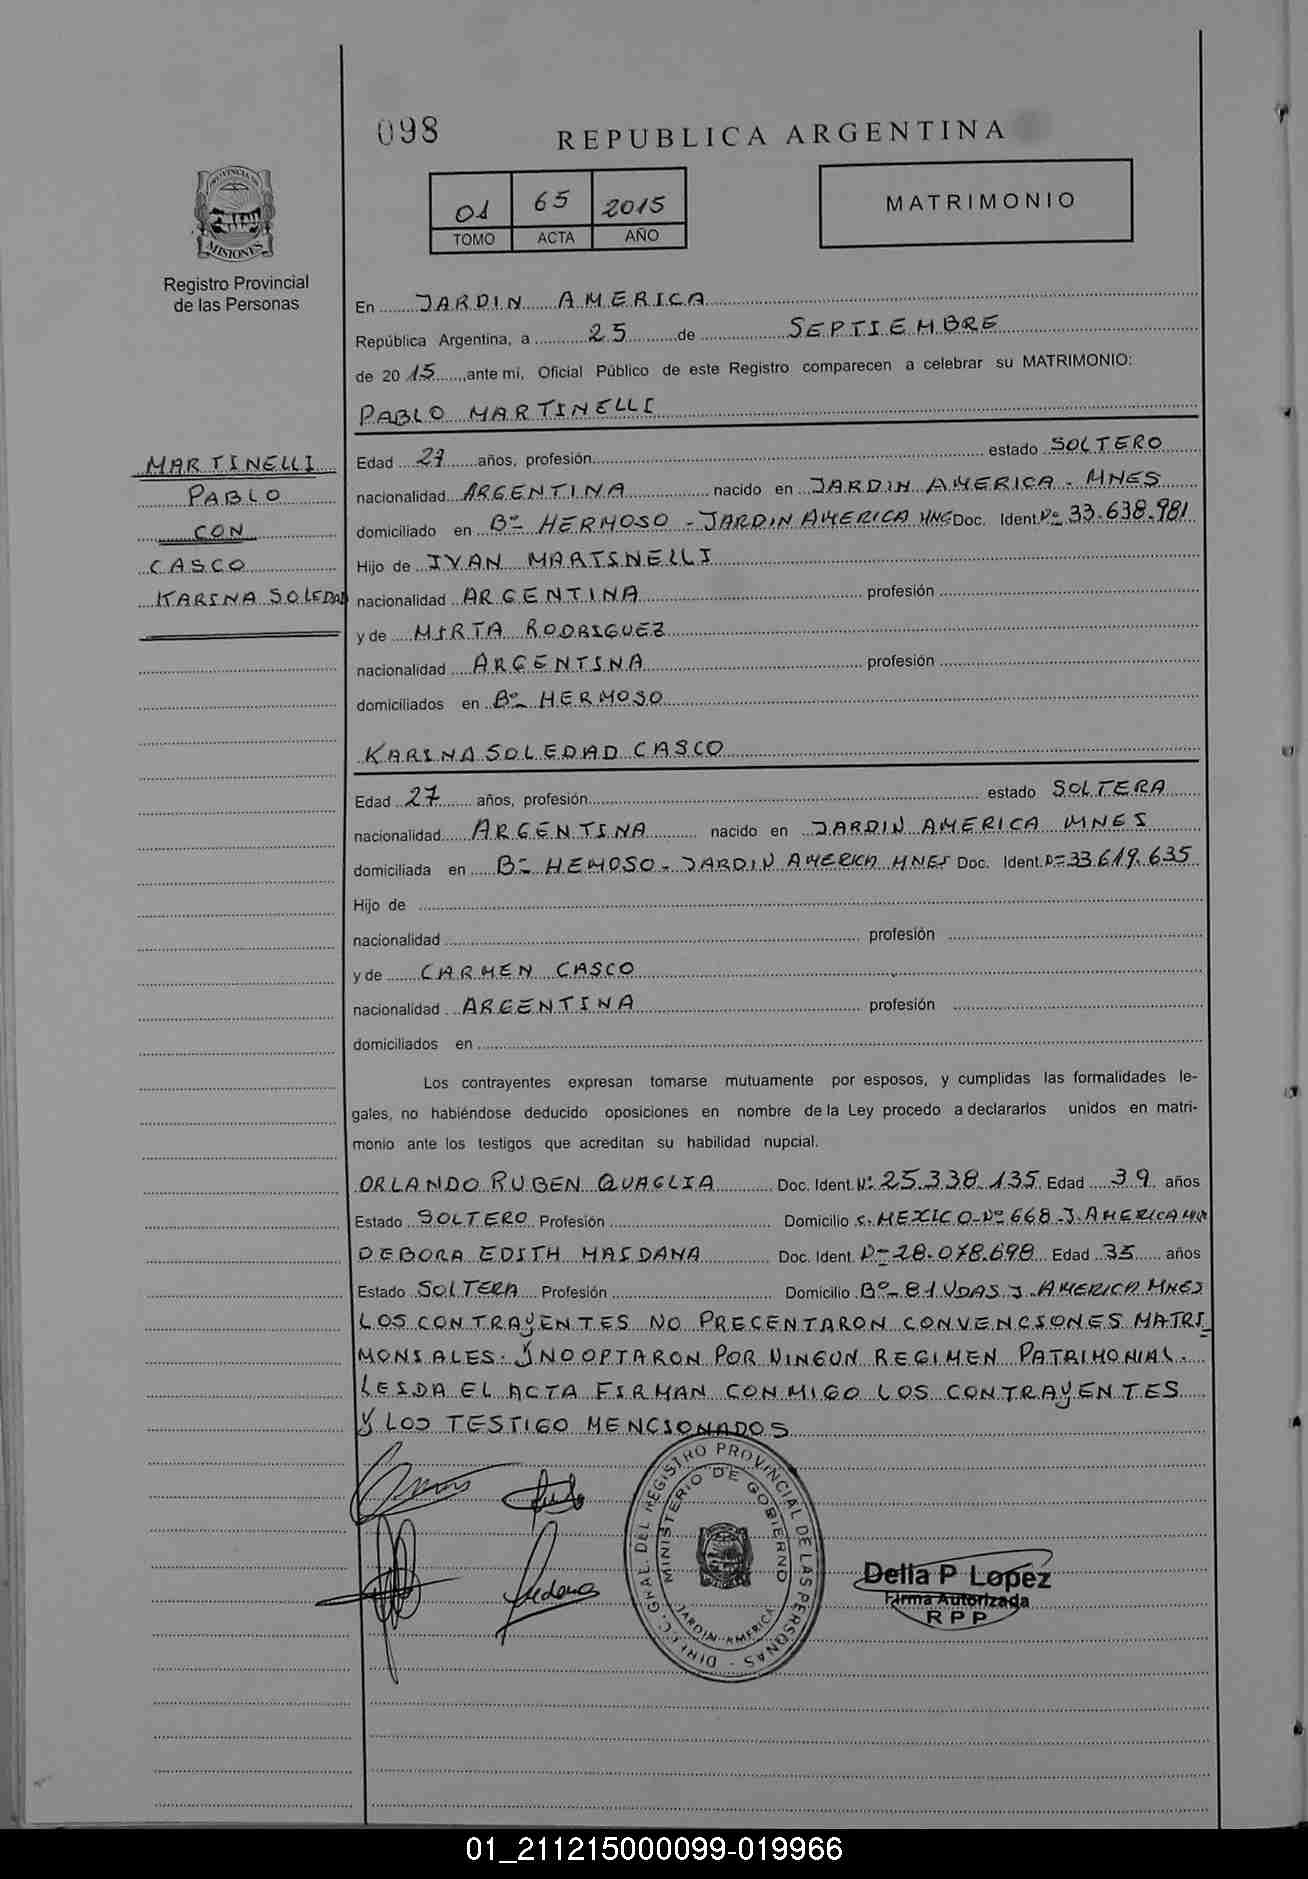 098
REPUBLICA ARGENTINA
PROVINCIA DE
MISIONES
Registro Provincial
de las Personas
01 65 2015
TOMO ACTA AÑO
MATRIMONIO
En JARDIN AMERICA
República Argentina, a 25 de SEPTIEMBRE
de 2015, ante mi, Oficial Público de este Registro comparecen a celebrar su MATRIMONIO:
PABLO MARTINELLI
MARTINELLI
PABLO
CON
CASCO
KARINA SOLEDAD
Edad 27 años, profesión estado SOLTERO
nacionalidad ARGENTINA nacido en JARDIN AMERICA - MNES
domiciliado en Bº HERMOSO - JARDIN AMERICA MNES Doc. Ident. Nº 33.638.981
Hijo de IVAN MARTINELLI
nacionalidad ARGENTINA profesión
y de MIRTA RODRIGUEZ
nacionalidad ARGENTINA profesión
domiciliados en Bº HERMOSO
KARINA SOLEDAD CASCO
Edad 27 años, profesión estado SOLTERA
nacionalidad ARGENTINA nacido en JARDIN AMERICA MNES
domiciliada en Bº HEMOSO - JARDIN AMERICA MNES Doc. Ident. Nº 33.619.635
Hijo de
nacionalidad profesión
y de CARMEN CASCO
nacionalidad ARGENTINA profesión
domiciliados en
Los contrayentes expresan tomarse mutuamente por esposos, y cumplidas las formalidades le-
gales, no habiéndose deducido oposiciones en nombre de la Ley procedo a declararlos unidos en matri-
monio ante los testigos que acreditan su habilidad nupcial.
ORLANDO RUBEN QUAGLIA Doc. Ident. Nº 25.338.135 Edad 39 años
Estado SOLTERO Profesión Domicilio C. MEXICO - Nº 668 - J. AMERICA
DEBORA EDITH MAIDANA Doc. Ident. Nº 28.078.698 Edad 35 años
Estado SOLTERA Profesión Domicilio Bº - 81 VDAS J. AMERICA MNES
LOS CONTRAYENTES NO PRECENTARON CONVENCIONES MATRI_
MONIALES. Y NO OPTARON POR NINGUN REGIMEN PATRIMONIAL.
LEIDA EL ACTA FIRMAN CONMIGO LOS CONTRAYENTES
Y LOS TESTIGO MENCIONADOS
DIRECC. GRAL. DEL REGISTRO PROVINCIAL DE LAS PERSONAS -
MINISTERIO DE GOBIERNO
JARDIN AMERICA
Delia P Lopez
Firma Autorizada
R P P
01_211215000099-019966